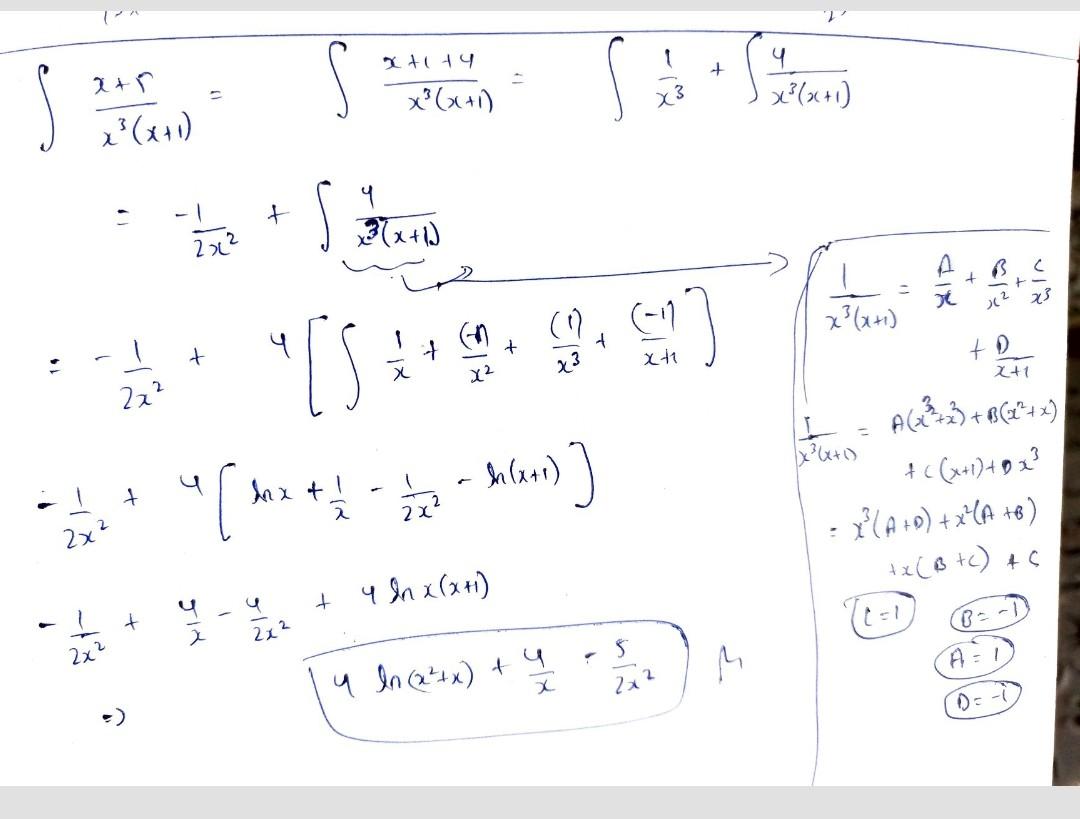 ∫ x+5 / x³(x+1) = ∫ x+1+4 / x³(x+1) = ∫ 1/x³ + ∫ 4 / x³(x+1)
= -1/2x² + ∫ 4 / x³(x+1)
= -1/2x² + 4 [ ∫ 1/x + (-1)/x² + (1)/x³ + (-1)/x+1 ]
-1/2x² + 4 [ ln x + 1/x - 1/2x² - ln(x+1) ]
-1/2x² + 4/x - 4/2x² + 4 ln x(x+1)
=) 4 ln(x²+x) + 4/x - 5/2x²
1 / x³(x+1) = A/x + B/x² + C/x³
+ D/x+1
1 / x³(x+1) = A(x³+x²) + B(x²+x)
+ C(x+1) + Dx³
= x³(A+D) + x²(A+B)
+x(B+C) + C
C=1 B=-1
A=1
D=-1